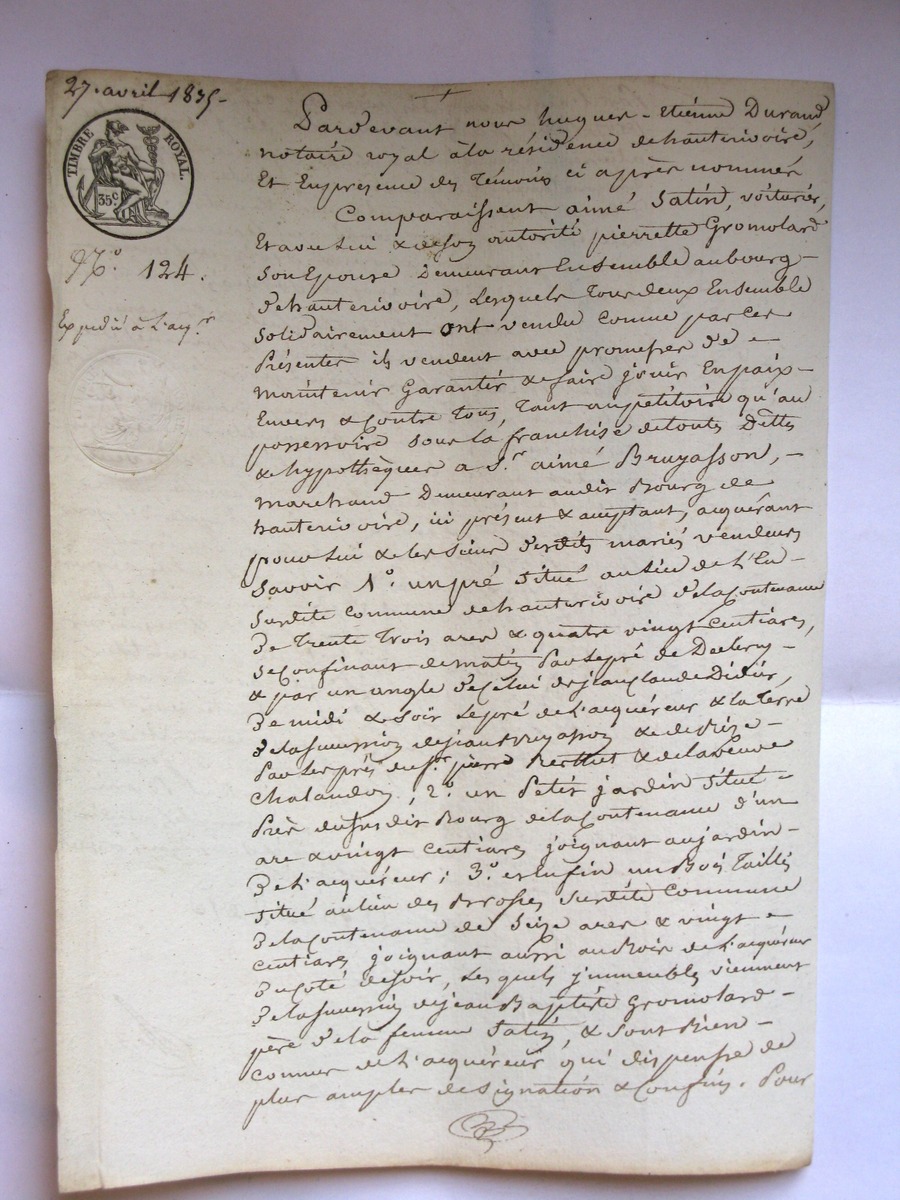 27 avril 1835
TIMBRE ROYAL.
35c.
N.o 124.
Expédié à L'acq.r
Pardevant nous hugues-Etiénne Durand
notaire royal àla résidence de hauterivoire,
Et Enprésence des Témoins ci après nommés
Comparaissent aimé Satin, voiturier,
Et avec Lui & deson autorité pierrette Gromolard
Son Epouse Demeurant Ensemble au bourg
d'hauterivoire, Lesquels Tous deux Ensemble
Solidairement ont vendu comme par ces
Présentes ils vendent avec promesses de
maintenir Garantir & de faire jouir En paix
Envers & Contre Tous, Tant au pétitoire qu'au
possessoire sous la franchise de toutes Dettes
& hypothèques a S.r aimé Bruyasson,
marchand Demeurant audit Bourg de
hauterivoire, ici présent & acceptant, acquérant
pour Lui & les Siens desdits mariés vendeurs
Savoir 1.o un pré Situé au Lieu de L'
Surdite Commune de hauterivoire de la Contenance
De Trente Trois ares & quatre vingt Centiares,
Se Confinant de matin Par Le pré de
& par un angle de Celui de jean Claude Didier,
De midi & Soir Le pré de L'acquéreur & la Terre
De la Succession de jean Bruyasson & de Bize
Par Les prés du S.r pierre Berthet & de la veuve
Chalandon; 2.o un Petit jardin Situé
Près du susdit Bourg de la Contenance d'un
are & vingt Centiares joignant au jardin
De L'acquéreur; 3.o et Enfin un Bois Taillis
Situé au Lieu des Brosses Surdite Commune
De la Contenance de Seize ares & vingt
Centiares joignant aussi au Bois de L'acquéreur
Du Coté de Soir, Les quels jmmeubles viennent
De la Succession de jean Baptiste Gromolard
père de la femme Satin, & Sont Bien
Connus de L'acquéreur qui dispense de
plus amples designation & Confins. Pour